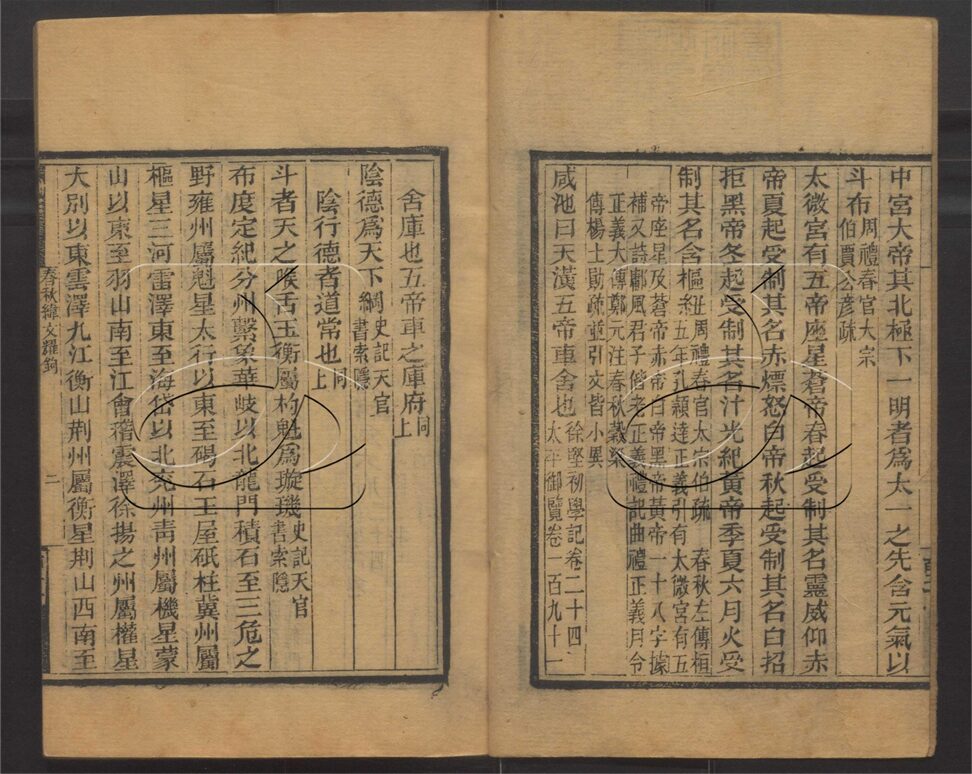 中宮大帝其北極下一明者爲太一之先含元氣以
斗布周禮春官大宗
伯賈公彦疏
太微宮有五帝座星蒼帝春起受制其名靈威仰赤
帝夏起受制其名赤熛怒白帝秋起受制其名白招
拒黑帝冬起受制其名汁光紀黃帝季夏六月火受
制其名含樞紐周禮春官太宗伯疏 春秋左傳桓
五年孔穎達正義引有太微宮有五
帝座星及蒼帝赤帝白帝黑帝黃帝一十八字據
補又詩鄘風君子偕老正義禮記曲禮正義月令
正義大傳鄭元注春秋穀梁
傳楊士勛疏並引文皆小異
咸池曰天潢五帝車舍也徐堅初學記卷二十四
太平御覽卷一百九十一
舍庫也五帝車之庫府同
上
陰德爲天下綱史記天官
書索隱
陰行德者道常也同
上
斗者天之喉舌玉衡屬杓魁爲璇璣史記天官
書索隱
布度定紀分州繫象華岐以北龍門積石至三危之
野雍州屬魁星太行以東至碣石王屋砥柱冀州屬
樞星三河雷澤東至海岱以北兗州青州屬機星蒙
山以東至羽山南至江會稽震澤徐揚之州屬權星
大別以東雲澤九江衡山荆州屬衡星荆山西南至
春秋緯文耀鉤
二